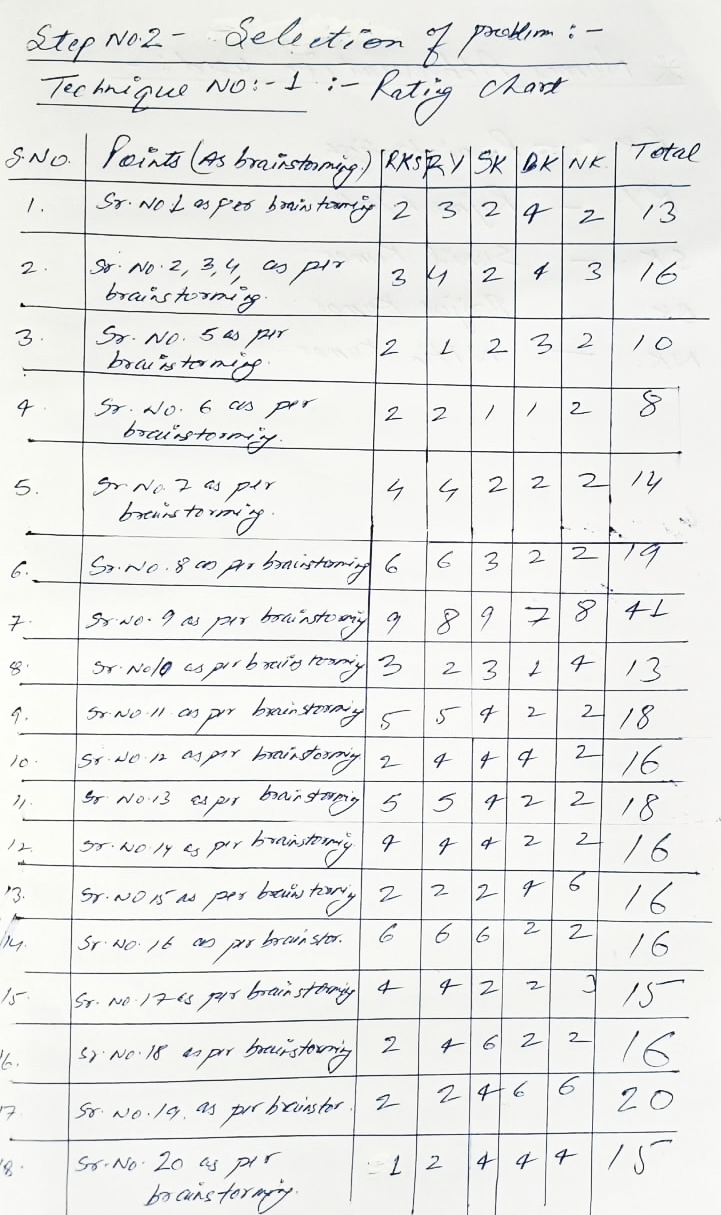 Step No.2 - Selection of problem :-
Technique NO:- 1 :- Rating chart
S.NO. Points (As brainstorming.) RKS RY SK BK NK Total
1. Sr. No 1 as per brainstorming 2 3 2 4 2 13
2. Sr. No. 2, 3, 4, as per 3 4 2 4 3 16
brainstorming.
3. Sr. No. 5 as per 2 1 2 3 2 10
brainstorming.
4. Sr. No. 6 as per 2 2 1 1 2 8
brainstorming.
5. Sr No. 7 as per 4 4 2 2 2 14
brainstorming.
6. Sr. No. 8 as per brainstorming 6 6 3 2 2 19
7. Sr. No. 9 as per brainstormig 9 8 9 7 8 41
8. Sr. No 10 as per brainstormig 3 2 3 1 4 13
9. Sr. No 11 as per brainstorming 5 5 4 2 2 18
10. Sr. No 12 as per brainstorming 2 4 4 4 2 16
11. Sr No. 13 as per brainstormig 5 5 4 2 2 18
12. Sr. No 14 as per brainstormig 4 4 4 2 2 16
13. Sr. NO 15 as per brainstormig 2 2 2 4 6 16
14. Sr. No. 16 as per brainstor. 6 6 6 2 2 16
15. Sr. No. 17 as per brainstorming 4 4 2 2 3 15
16. Sr. No. 18 as per brainstorming 2 4 6 2 2 16
17 Sr. No. 19. as per brainstor. 2 2 4 6 6 20
18. Sr. No. 20 as per 1 2 4 4 4 15
brainstorming.